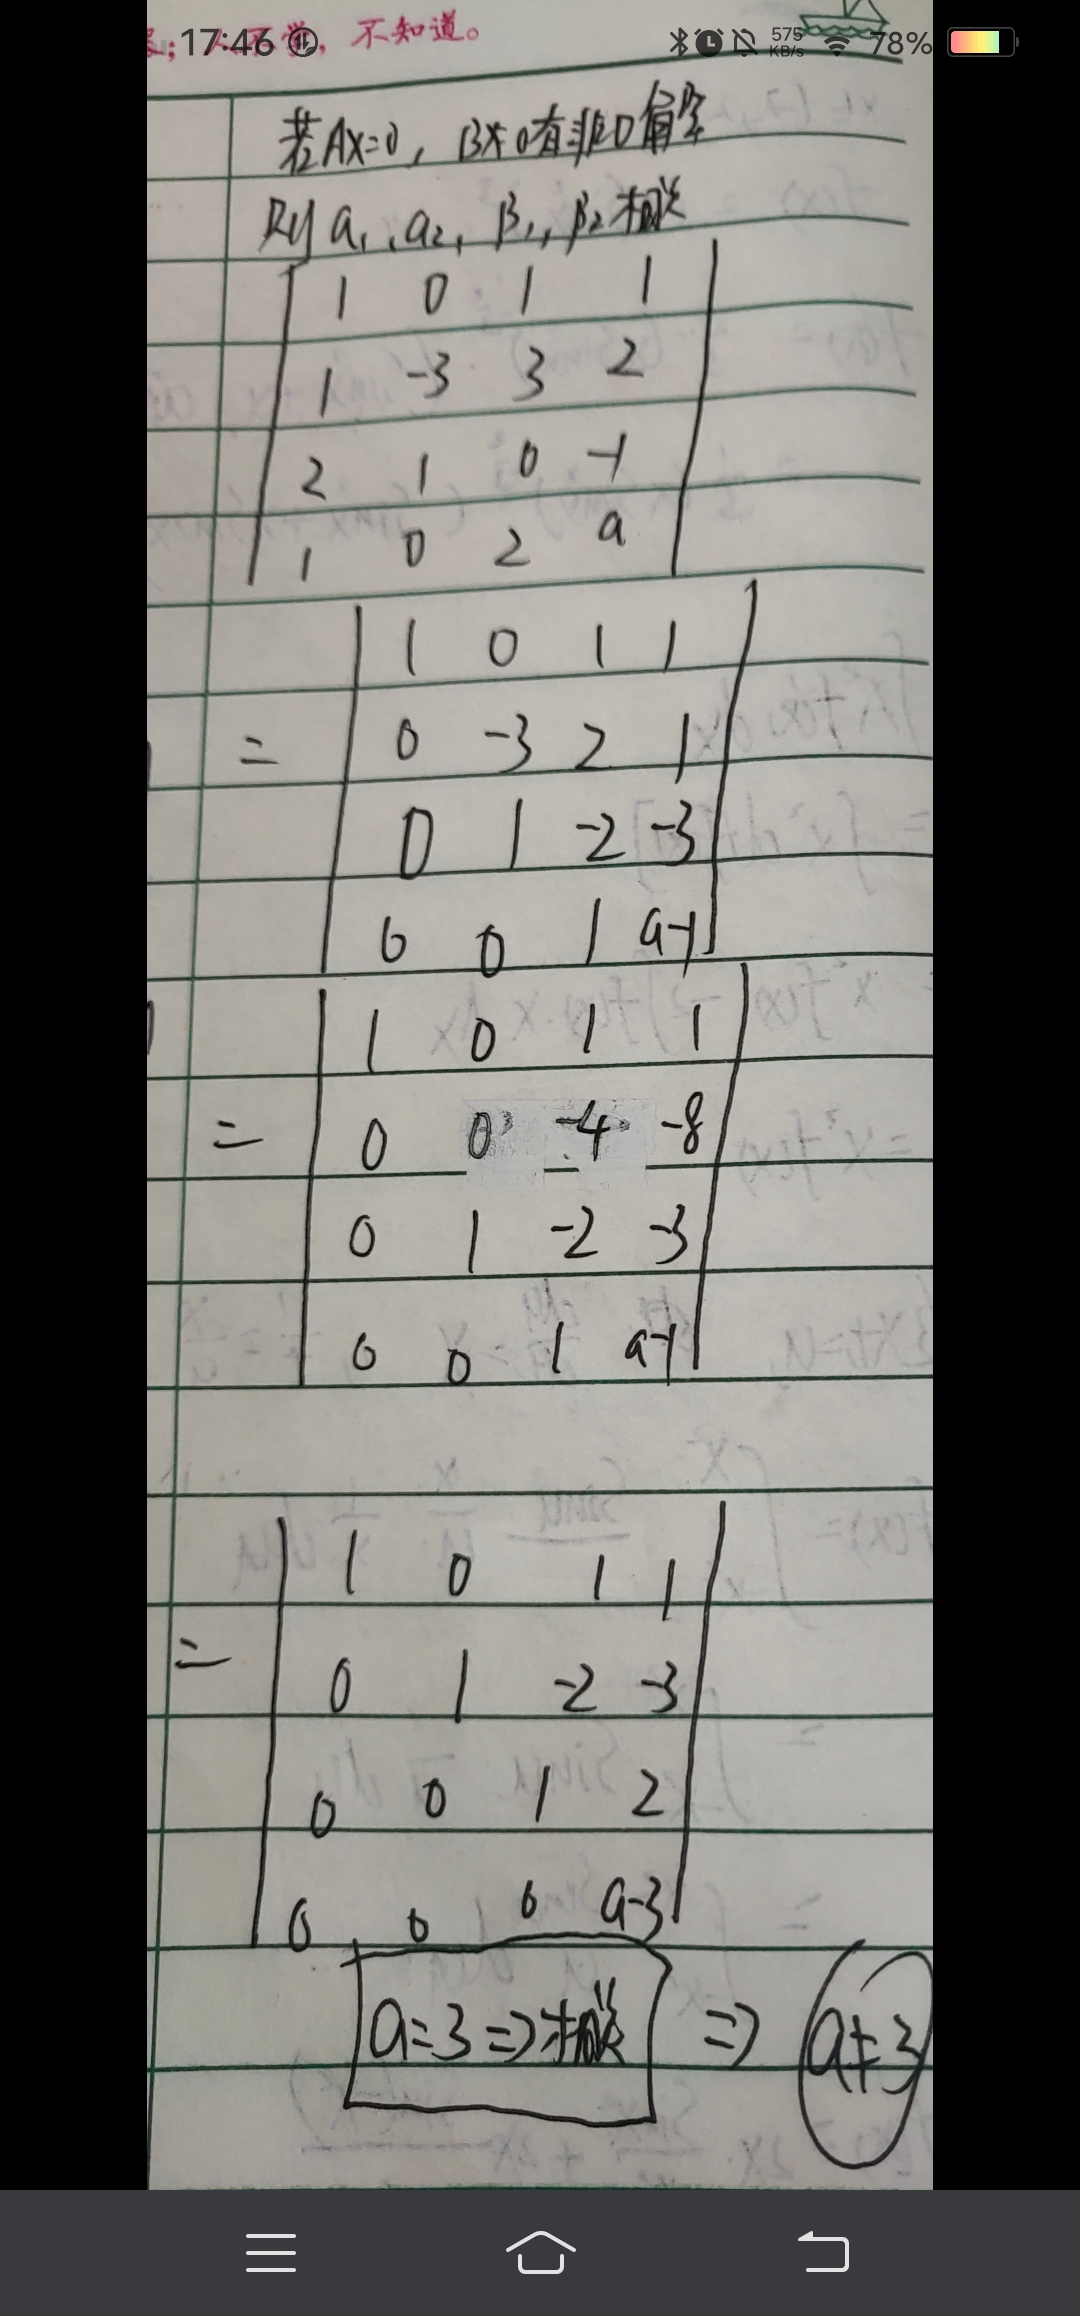 17:46
575 KB/s
78%
不知道。
若AX=0, BX=0有非0解
则 a₁, a₂, β₁, β₂ 相关
1 0 1 1
1 -3 3 2
2 1 0 -1
1 0 2 a
= 1 0 1 1
0 -3 2 1
0 1 -2 -3
0 0 1 a-1
= 1 0 1 1
0 0 -4 -8
0 1 -2 -3
0 0 1 a-1
= 1 0 1 1
0 1 -2 -3
0 0 1 2
0 0 0 a-3
a=3 => 相关 => a≠3